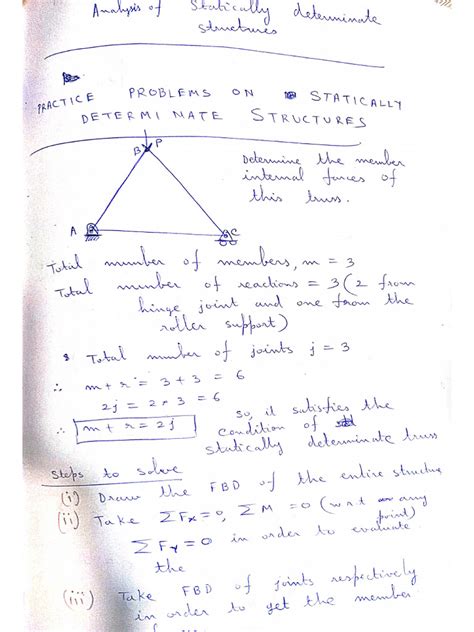 Analysis of Statically determinate
structures
PRACTICE PROBLEMS ON STATICALLY
DETERMINATE STRUCTURES
P
B
Determine the member
internal forces of
this truss.
A
C
Total number of members, m = 3
Total number of reactions = 3 (2 from
hinge joint and one from the
roller support)
Total number of joints j = 3
∴ m + r = 3 + 3 = 6
2j = 2 × 3 = 6
∴ m + r = 2j
So, it satisfies the
condition of
statically determinate truss
Steps to solve
(i) Draw the FBD of the entire structure
(ii) Take ΣFx = 0, ΣM = 0 (w.r.t any
point)
ΣFy = 0 in order to evaluate
the
(iii) Take FBD of joints respectively
in order to get the member